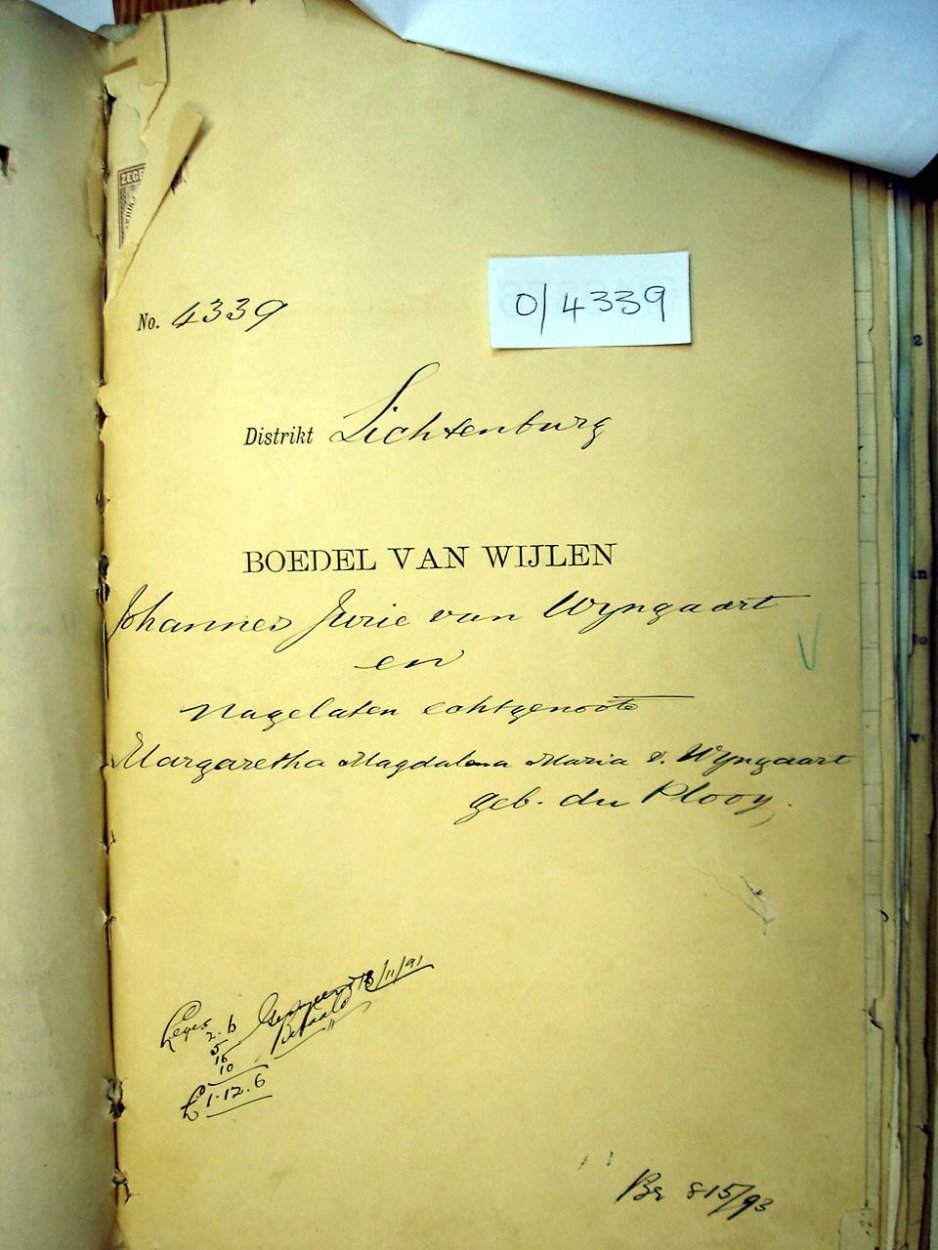 ZEGE
No. 4339
0/4339
Distrikt Lichtenburg
BOEDEL VAN WIJLEN
Johannes Jurie van Wyngaart
en
Nagelaten echtgenoote
Margaretha Magdalena Maria v. Wyngaart
geb. du Plooy.
Leges 2.6
5
15
10
£1.12.6
18/11/91
Betaald
815/93